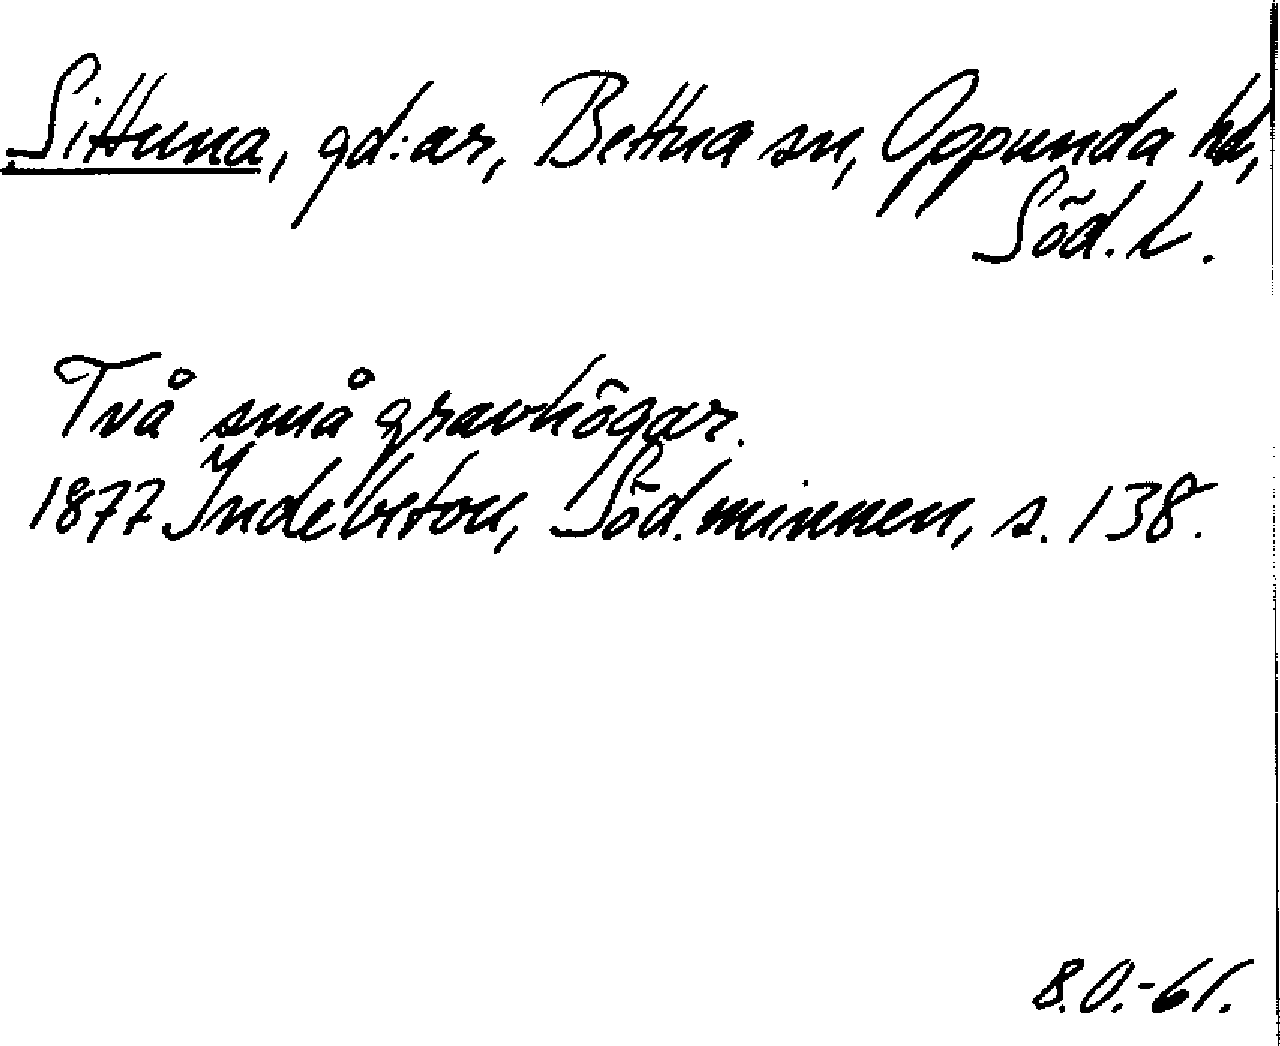 Sittuna, gd:ar, Bettna sn, Oppunda hd,
Söd. L.
Två små gravhögar.
1877 Indebetou, Söd. minnen, s. 138.
B.O.-61.